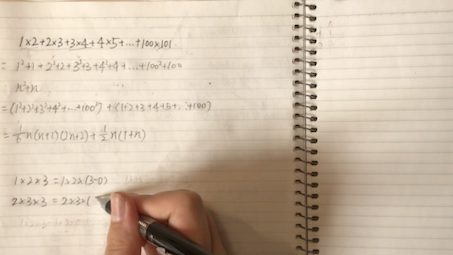 1×2+2×3+3×4+4×5+…+100×101
= 1²+1+2²+2+3²+3+4²+4+…+100²+100
n²+n
=(1²+2²+3²+4²+…+100²)+(1+2+3+4+5+…+100)
= 1/6 n(n+1)(2n+2)+ 1/2 n(1+n)
1×2×3 =1×2×(3-0)
2×3×3 = 2×3×(